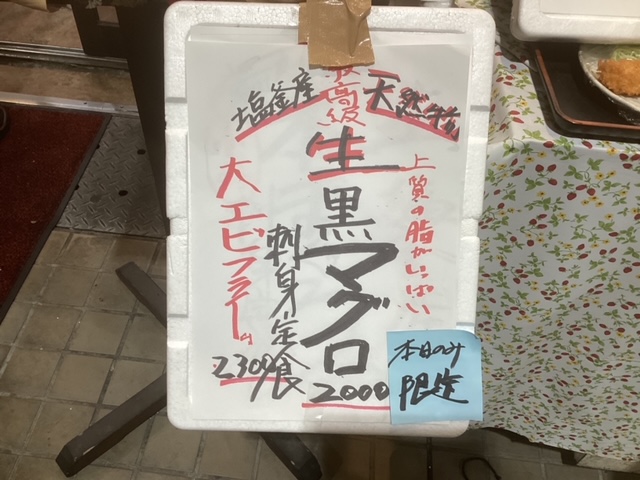 塩釜産
最高級
天然物
生黒マグロ
上質の脂がいっぱい
刺身定食
2000
大エビフライ
2300
本日のみ
限定